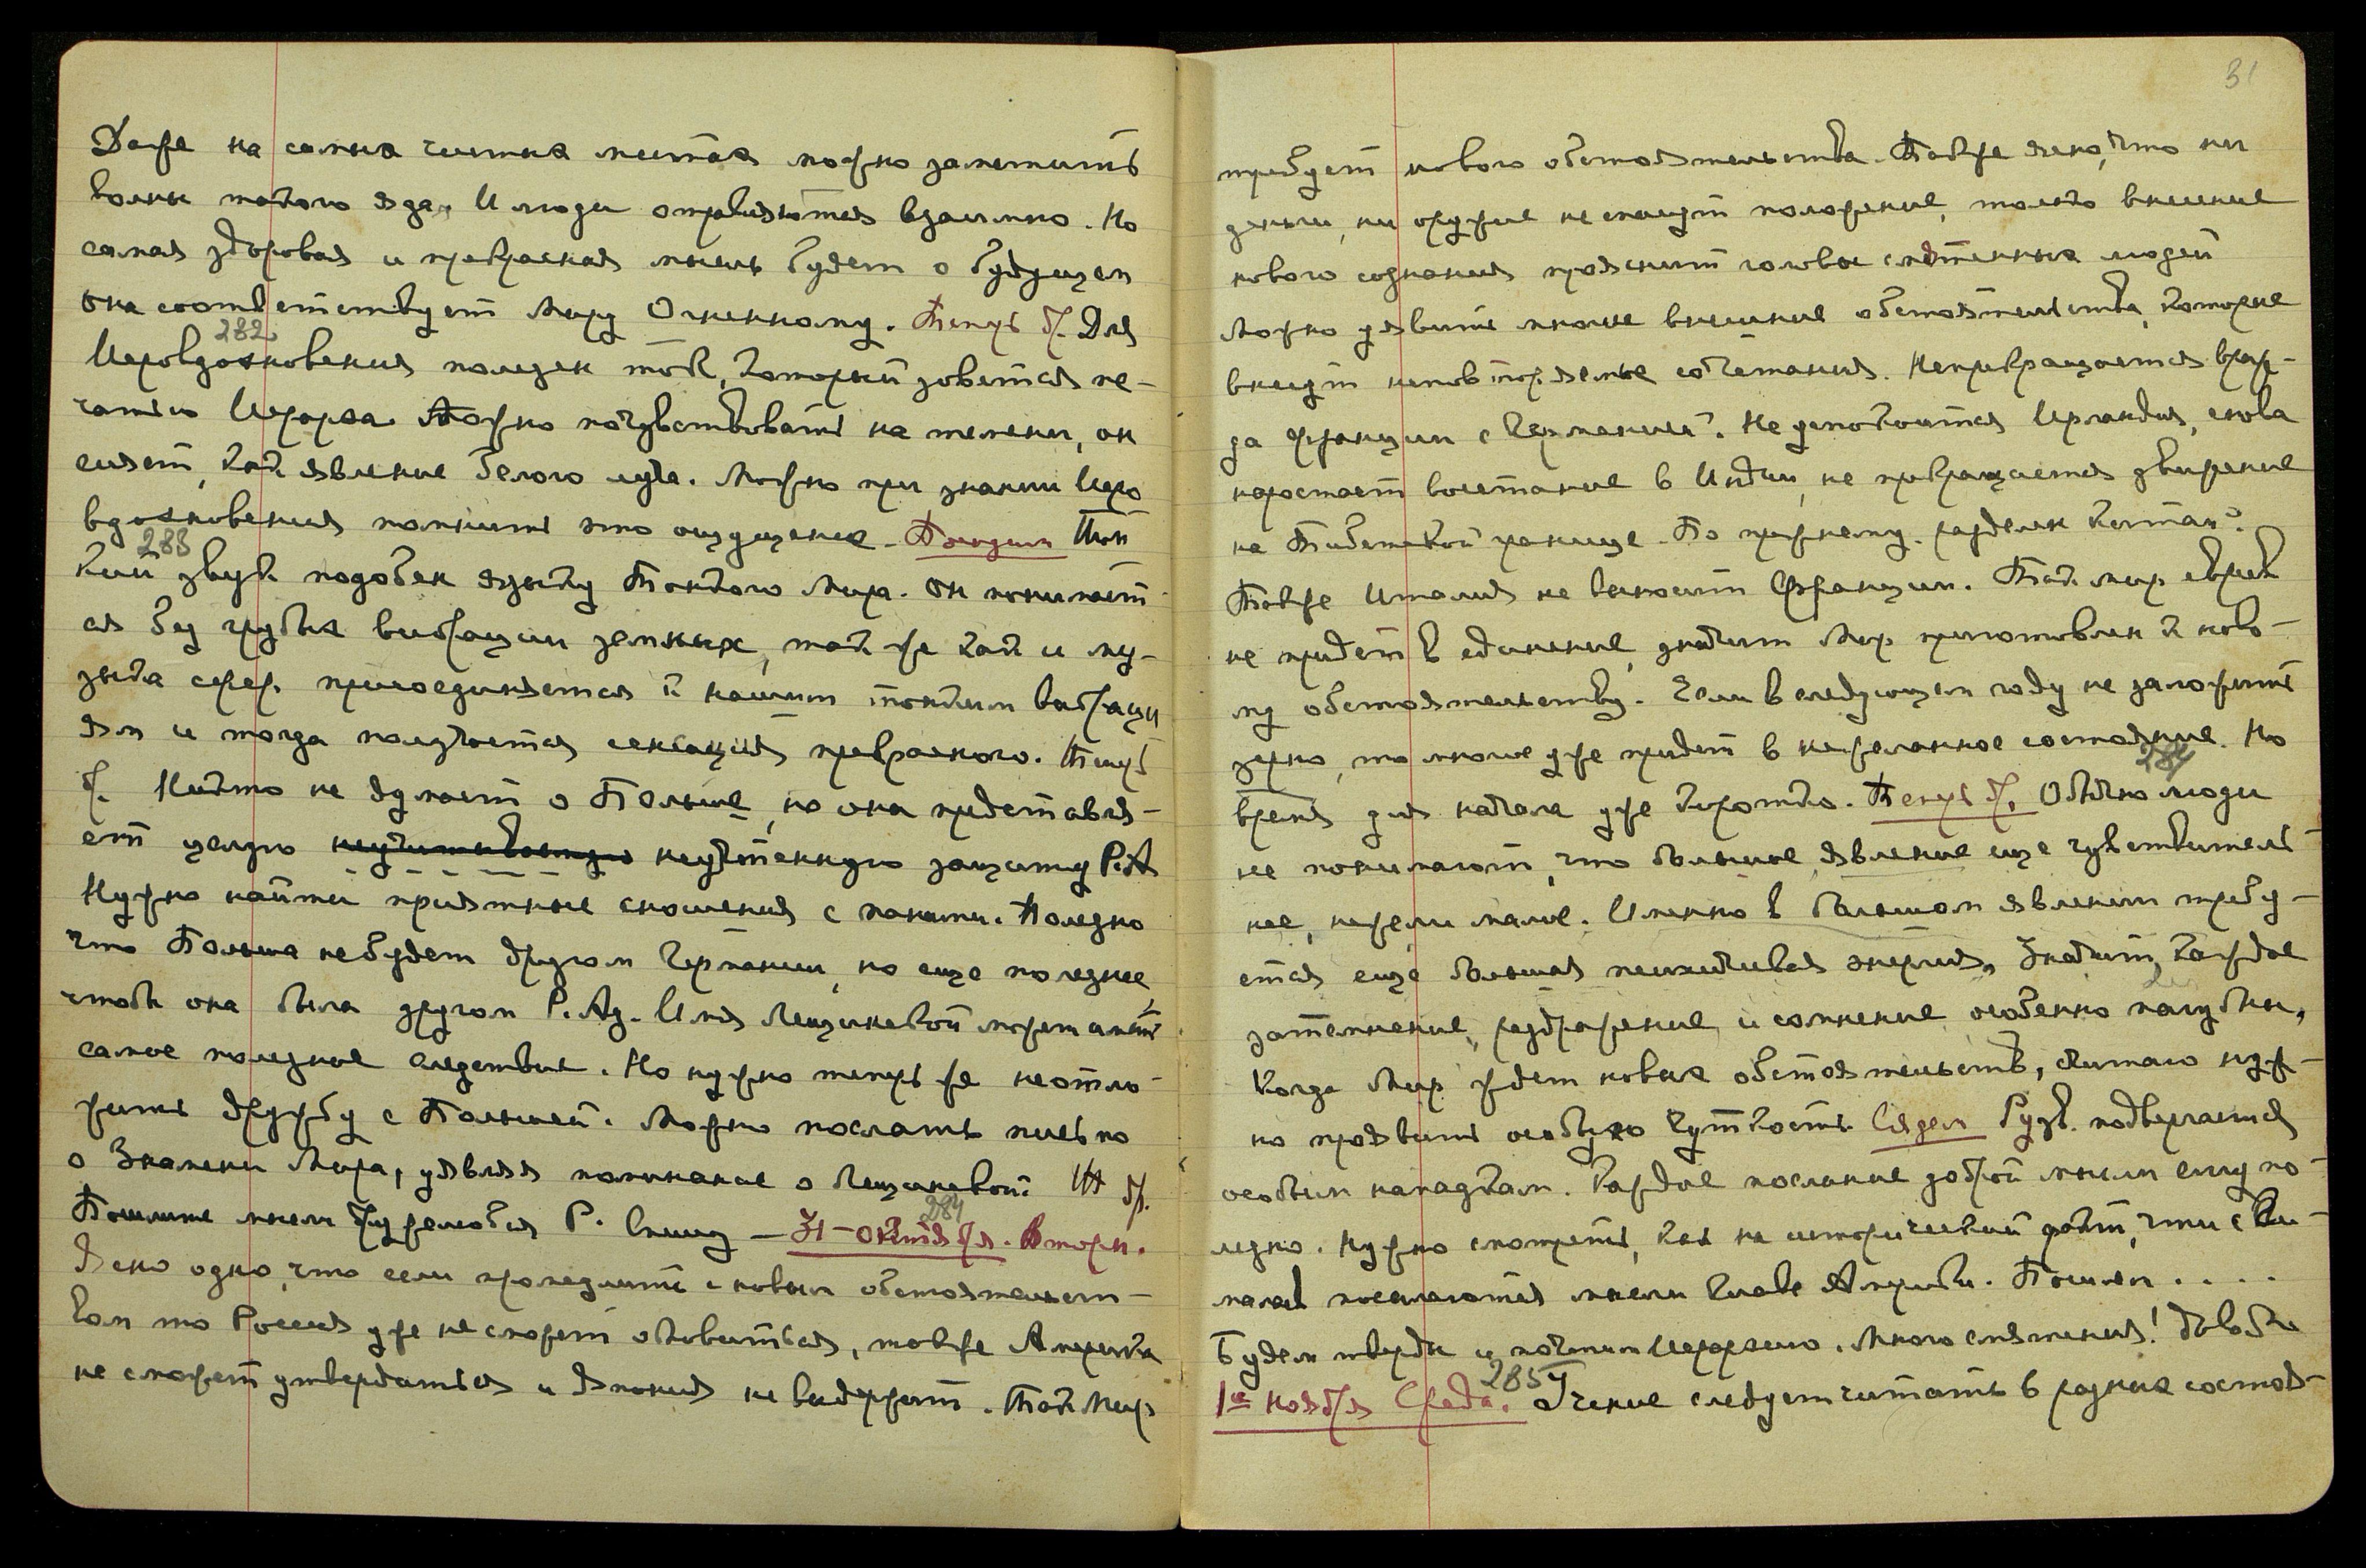 Даже на самых чистых местах можно заметить
волны такого яда. И люди отравляются взаимно. Но
самая здоровая и прекрасная мысль будет о будущем
она соответствует Миру Огненному. Теперь др. Для
282
Иеровдохновения полезен ток, который зовется пе-
чатью Иерарха. Можно почувствовать на темени, он
сияет, как явление белого луча. Можно при знании Иеро
вдохновения помнить это ощущение. Походим Тон
283
кий звук подобен языку Тонкого Мира. Он понимает
ся без грубых вибраций земных, так же как и му-
зыка сфер. присоединяется к нашим тонким вибраци
ям и тогда получается сенсация прекрасного. Теперь
др. Никто не думает о Польше, но она представля-
ет целую неучтенную защиту Р. А
Нужно найти приятные сношения с панами. Полезно
что Польша не будет другом Германии, но еще полезнее,
чтобы она была другом Р. Аз. Имя Лещинской может иметь
самое полезное следствие. Но нужно теперь же неотло
жить дружбу с Польшей. Можно послать письмо
о Знамени Мира, уявляя поминание о Лещинской. др.
Пошлите мысли Р.
284
31-октября. Вторн.
Ясно одно, что если промедлить с новым обстоятельст-
вом то Россия уже не сможет обновиться, также Америка
не сможет утвердиться и Япония не выдержит. Так Мир
31
требует нового обстоятельства. Также ясно, что ни
деньги, ни оружие не спасут положение, только внесение
нового сознания прояснит головы смятенных людей
Можно уявить многие внешние обстоятельства, которые
внесут неповторяемые сочетания. Не прекращается враж-
да Франции с Германией. Не успокоится Ирландия, снова
наростает восстание в Индии, не прекращается движение
на Тибетской границе. По прежнему разделен Китай.
Также Италия не выносит Франции. Так мир евреев
не придет в единение, значит Мир приготовлен к ново-
му обстоятельству. Если в следующем году не заложить
зерно, то многое уже придет в нежеланное состояние. Но
284
время для начала уже коротко. Теперь др. Обычно люди
не понимают, что большое явление еще чувствитель
нее, нежели малое. Именно в большом явлении требу-
ется еще большая психическая энергия. Значит, каждое
затемнение, раздражение и сомнение особенно пагубны,
Когда Мир ждет новых обстоятельств, считаю нуж-
но проявить особую чуткость. Сядем Рузв. подвергается
особым нападкам. Каждое послание доброй мысли ему по-
лезно. Нужно смотреть, как на исторический факт, что с Ги-
малаев посылаются мысли Главе Америки. Пошлем . . . .
Будем тверды и почтим Иерархию. Много смятения! Довольно
285
1ое Ноября Среда. Учение следует читать в разных состоя-